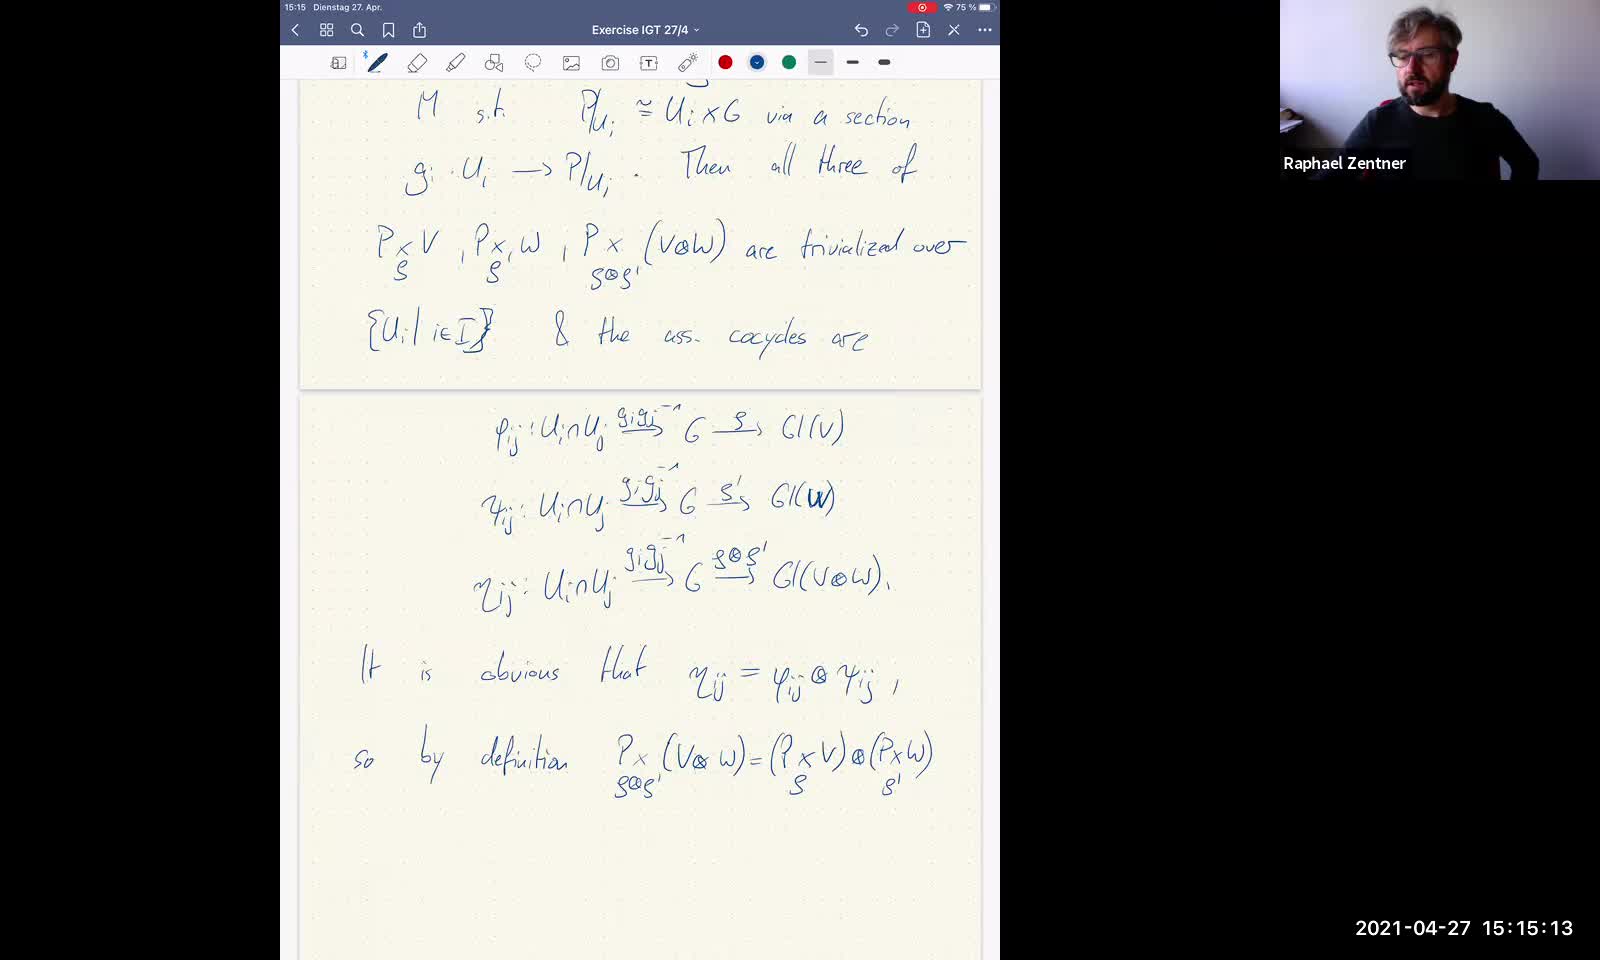 15:15 Dienstag 27. Apr.
75 %
Exercise IGT 27/4
M s.t. P/U_i ≅ U_i × G via a section
g_i : U_i → P/U_i . Then all three of
P ×_ρ V , P ×_ρ' W , P ×_ρ⊗ρ' (V⊗W) are trivialized over
{U_i | i∈I} & the ass. cocycles are
φ_ij : U_i∩U_j —g_i g_j^{-1}→ G —ρ→ Gl(V)
ψ_ij : U_i∩U_j —g_i g_j^{-1}→ G —ρ'→ Gl(W)
η_ij : U_i∩U_j —g_i g_j^{-1}→ G —ρ⊗ρ'→ Gl(V⊗W),
It is obvious that η_ij = φ_ij ⊗ ψ_ij ,
so by definition P ×_ρ⊗ρ' (V⊗W) = (P ×_ρ V) ⊗ (P ×_ρ' W)
Raphael Zentner
2021-04-27 15:15:13